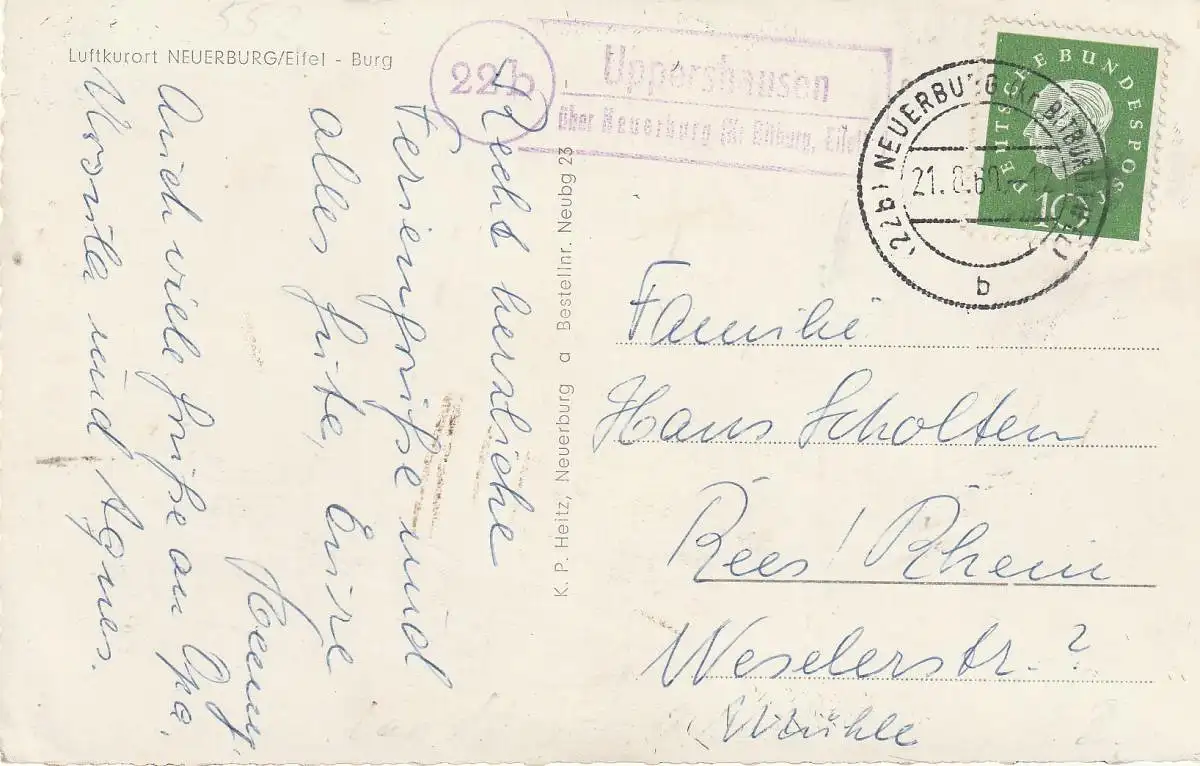 Luftkurort NEUERBURG/Eifel - Burg
22b
Uppershausen
über Neuerburg (Kr. Bitburg, Eifel)
DEUTSCHE BUNDESPOST
10
(22b) NEUERBURG BITBURG
21. 8. 60
b
Recht herzliche
Feriengrüße und
alles Gute, Eure
Auch viele Grüße an Opa,
und Agnes.
K. P. Heitz, Neuerburg a Bestellnr. Neubg 23
Familie
Hans Scholten
Rees/ Rhein
Weselerstr. ?
Mühle